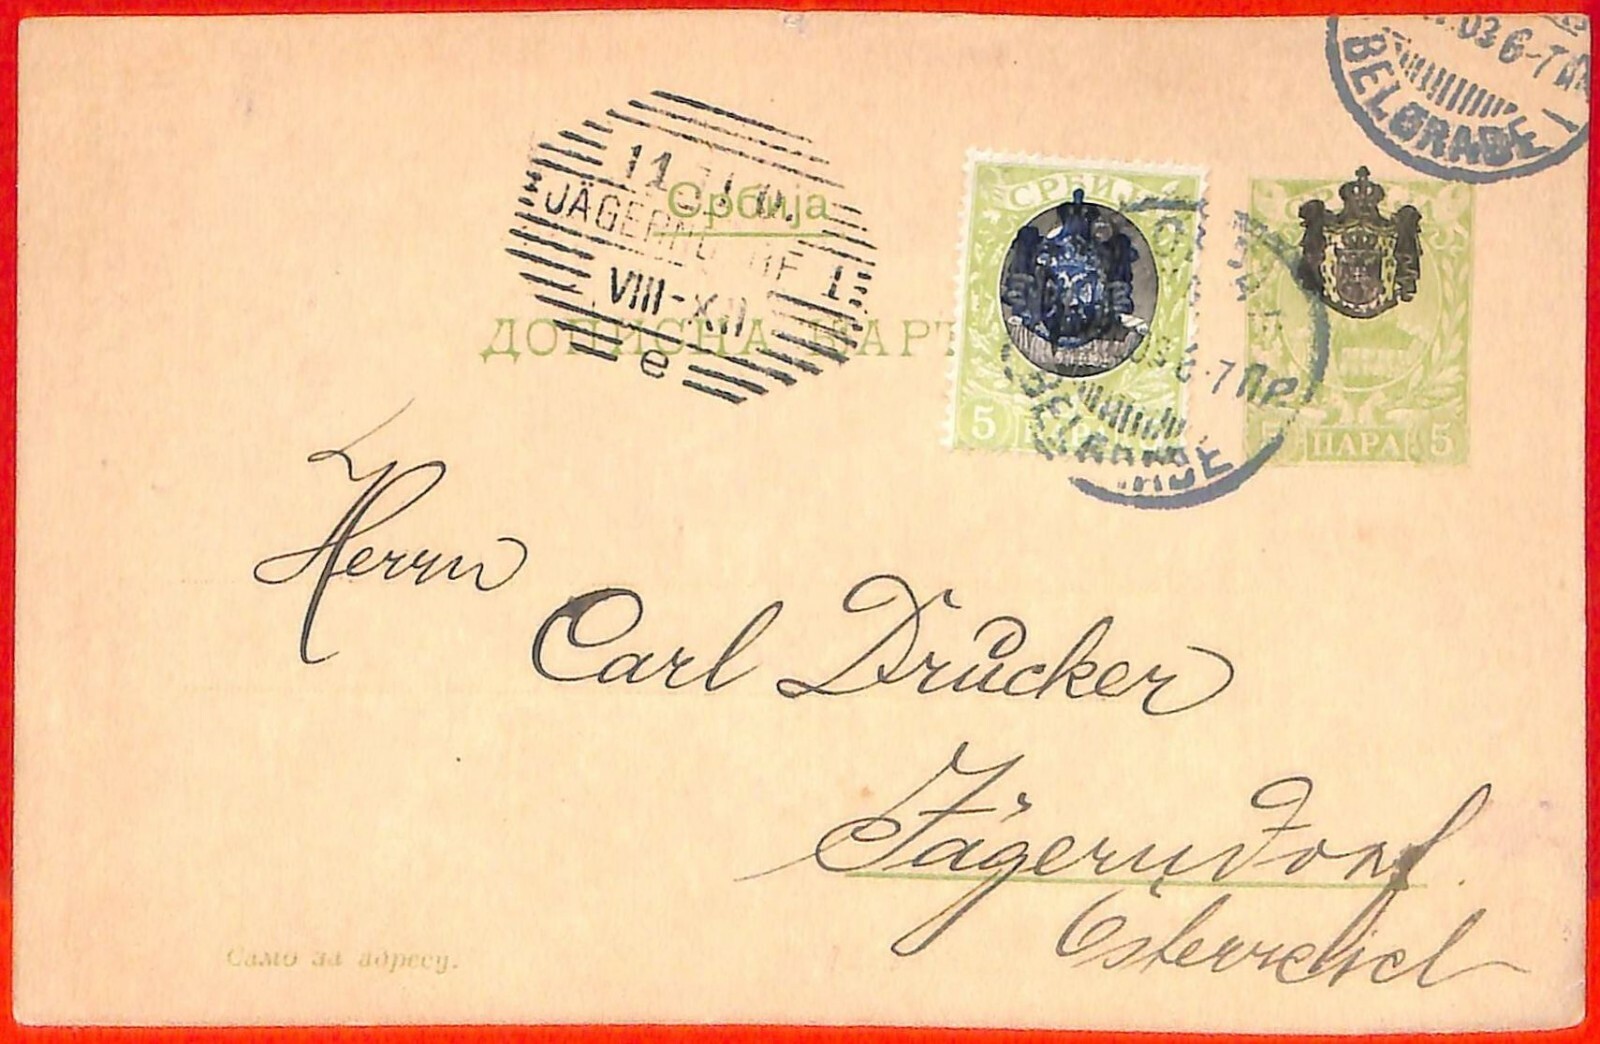 03 6-7
BELGRADE
Србија
СРБИЈА
5 ПАРА 5
5
11
JÄGERNDORF 1.
VIII-XII
e
ДОПИСНА КАРТА
6-7 ПР
BELGRADE
Herrn
Carl Drůcker
Jägerndorf.
Österreich
Само за адресу.